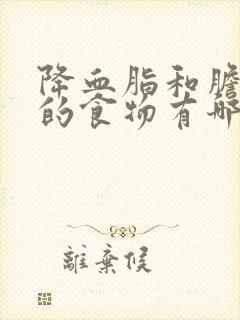 降血脂和膽
的食物有哪
離棄候